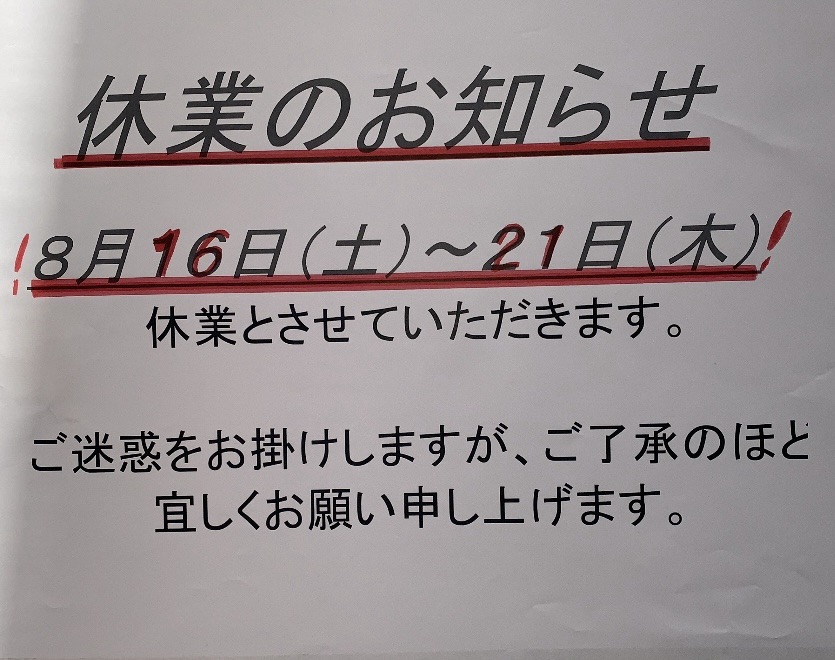 休業のお知らせ
!8月16日(土)~21日(木)!
休業とさせていただきます。
ご迷惑をお掛けしますが、ご了承のほど
宜しくお願い申し上げます。